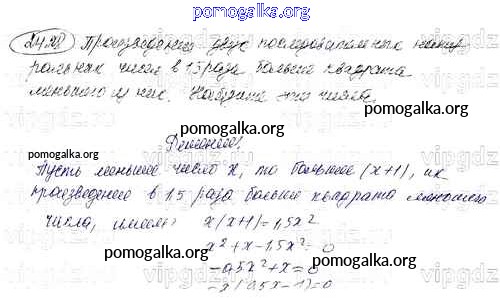 pomogalka.org
24.28 Произведение двух последовательных натур
ральных чисел в 1,5 раза больше квадрата
pomogalka.org
меньшего из них. Найдите эти числа.
pomogalka.org
Решение:
Пусть меньшее число x, то большее (x+1), их
произведение в 1.5 раза больше квадрата меньшего
pomogalka.org
числа, имеем: x(x+1)=1,5x²
x²+x-1,5x²=0
pomogalka.org
-0,5x²+x=0
-x(0,5x-1)=0